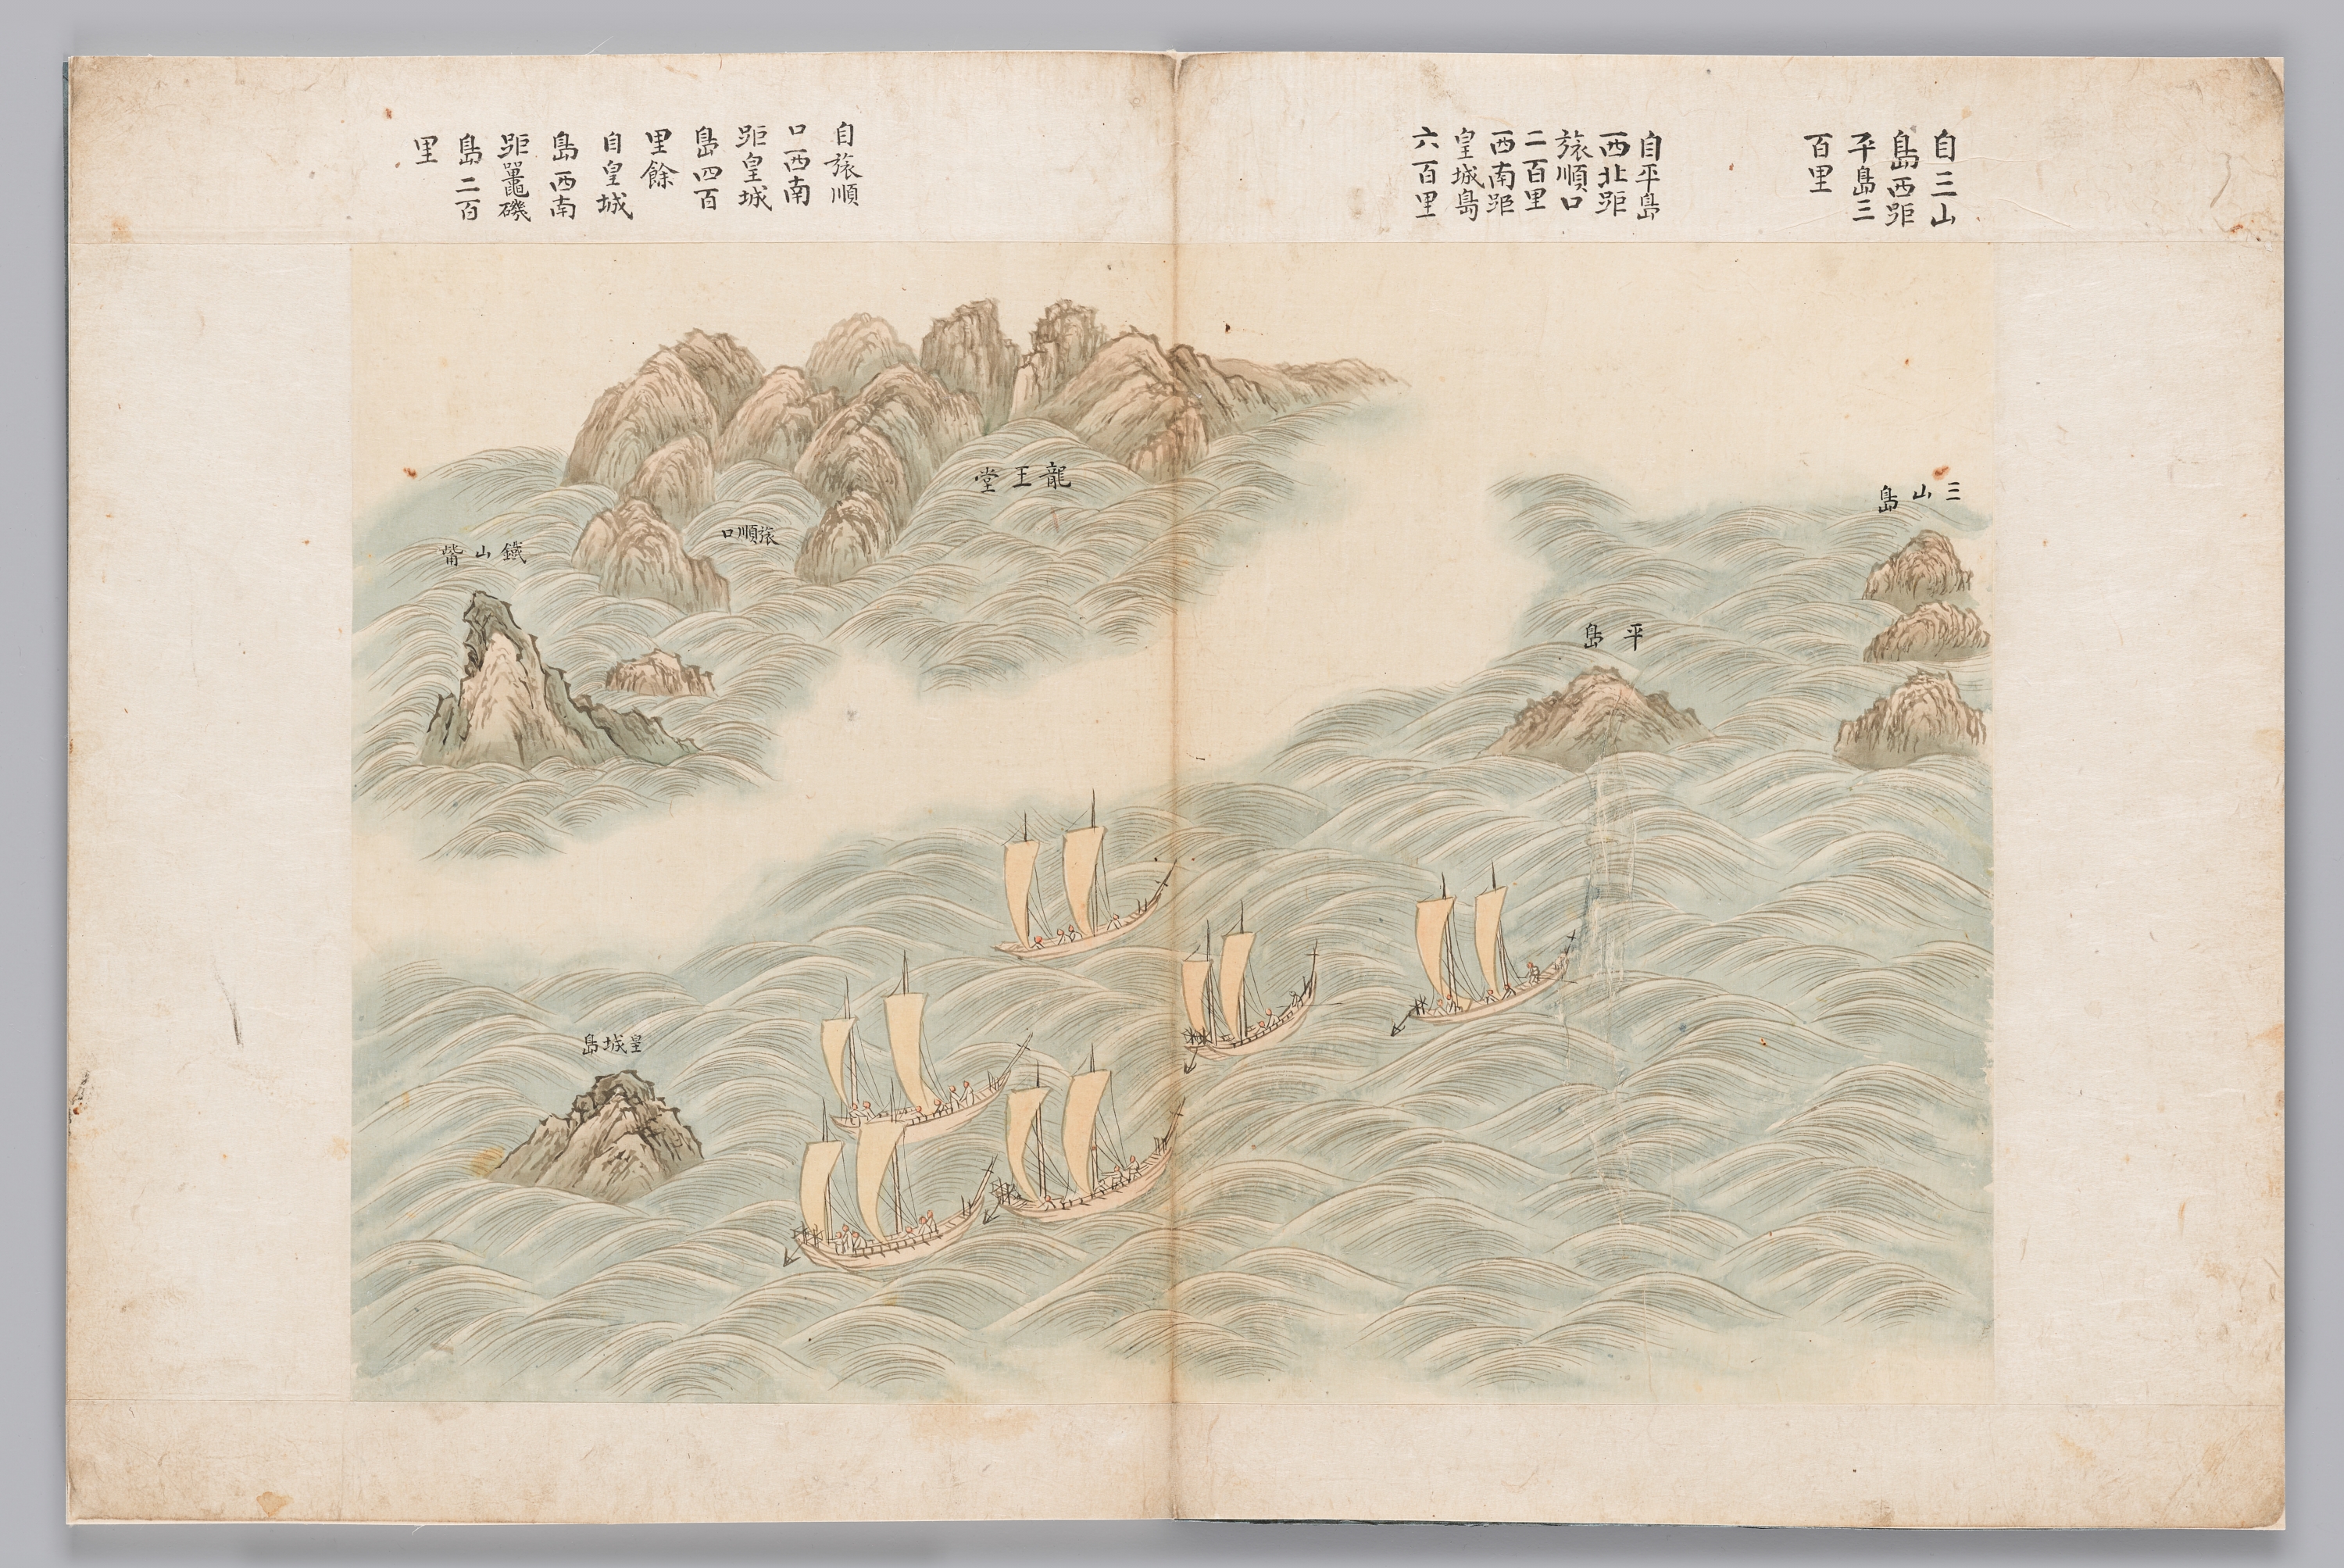 自三山
島西距
平島三
百里
自平島
西北距
旅順口
二百里
西南距
皇城島
六百里
自旅順
口西南
距皇城
島四百
里餘
自皇城
島西南
距鼉磯
島二百
里
三山島
平島
龍王堂
旅順口
鐵山觜
皇城島